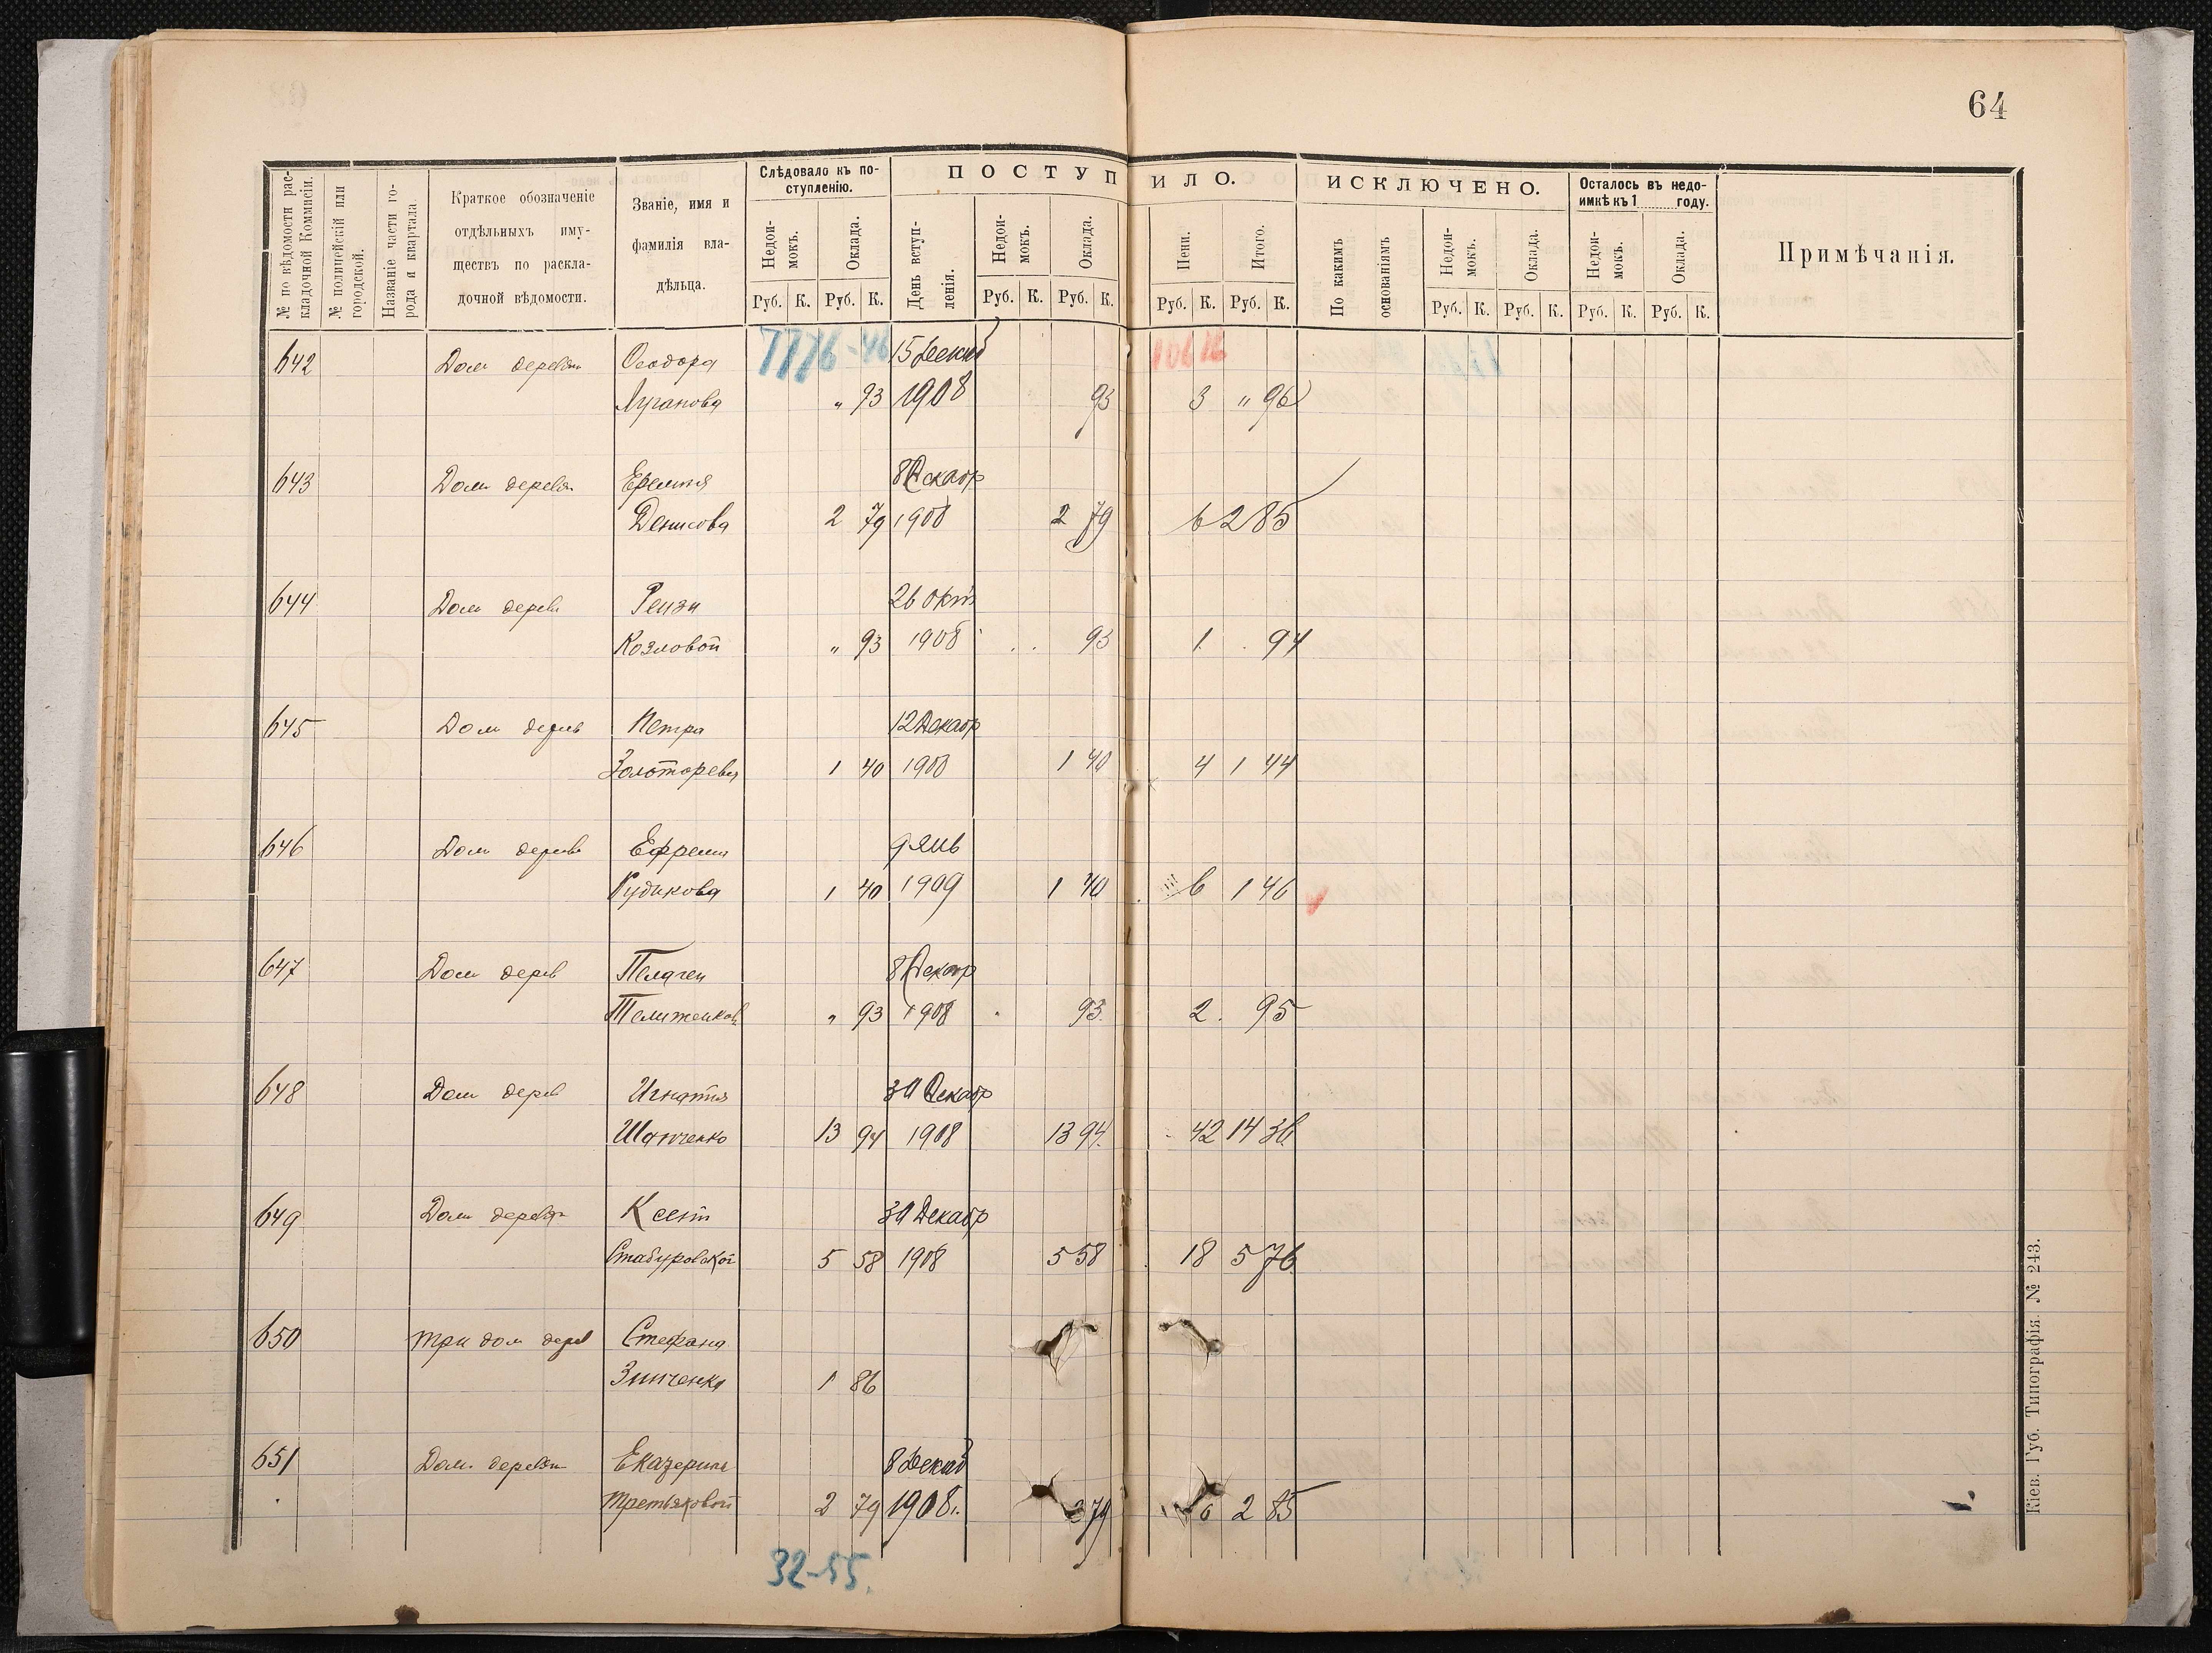 64
№ по вѣдомости раскладочной Коммисіи.
№ полицейскій или городской.
Названіе части города и квартала.
Краткое обозначеніе отдѣльныхъ имуществъ по раскладочной вѣдомости.
Званіе, имя и фамилія владѣльца.
Слѣдовало къ поступленію.
ПОСТУПИЛО.
ИСКЛЮЧЕНО.
Осталось въ недоимкѣ къ 1 году.
Примѣчанія.
Недоимокъ. Оклада. День вступленія. Недоимокъ. Оклада. Пени. Итого. По какимъ основаніямъ Недоимокъ. Оклада. Недоимокъ. Оклада.
Руб. К. Руб. К. Руб. К. Руб. К. Руб. К. Руб. К. Руб. К. Руб. К. Руб. К. Руб. К.
7776-46
642 Дом деревян Ѳеодора 15 декаб
Луганова " 93 1908 93 3 " 96
643 Дом деревян Еремия 8 Декабр
Денисова 2 79 1908 2 79 6 2 85
644 Дом дерев 26 окт
Козловой " 93 1908 93 1 94
645 Дом дерев Петра 12 Декабр
Золоторева 1 40 1908 1 40 4 1 44
646 Дом дерев Ефрема 9 янв
Кудикова 1 40 1909 1 40 6 1 46
647 Дом дерев Пелагеи 8 Декабр
" 93 1908 93 2 95
648 Дом дерев Игнатия 30 Декабр
Шанченко 13 94 1908 13 94 42 14 36
649 Дом деревян Ксен 30 Декабр
Стабуровской 5 58 1908 5 58 18 5 76
650 три дом дерев Стефана
Зинченка 1 86
651 Дом деревян Екатерины 8 декаб
Третьяковой 2 79 1908 г. 2 79 6 2 85
32-55.
Кіев. Губ. Типографія. № 243.